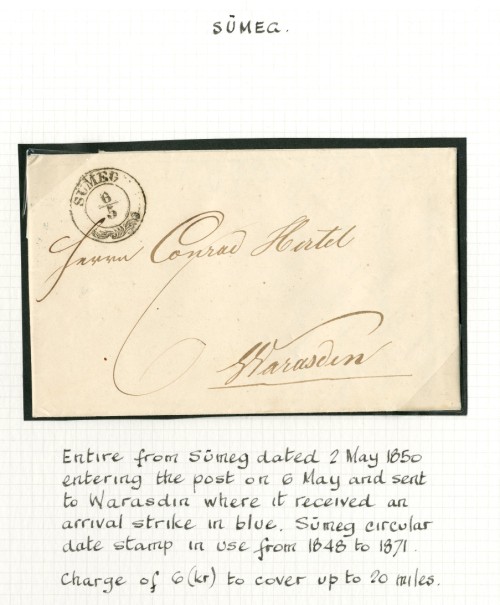 SŪMEG.
SÜMEG
6
5
Herrn Conrad Hertel
6
Warasdin
Entire from Sūmeg dated 2 May 1850
entering the post on 6 May and sent
to Warasdin where it received an
arrival strike in blue. Sūmeg circular
date stamp in use from 1848 to 1871.
Charge of 6(kr) to cover up to 20 miles.